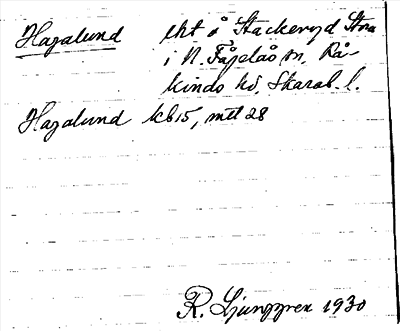 Hagalund lht å Stackeryd Stora
i N. Fågelås sn, Rå-
kinds hd, Skarab. l.
Hagalund kb 15, mtl 28
R. Ljunggren 1930